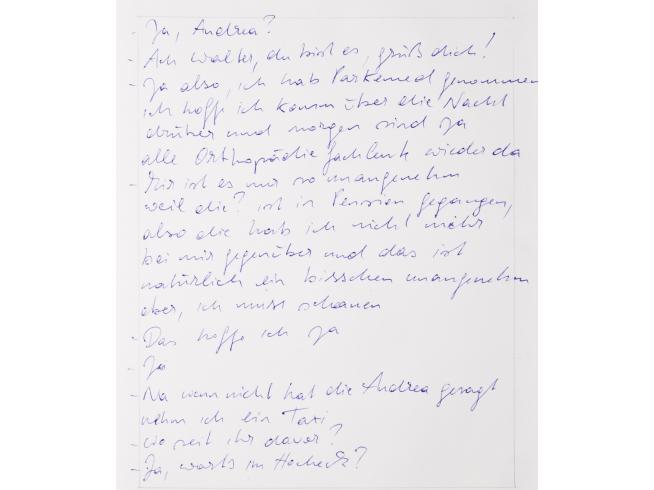 - Ja, Andrea?
- Ach Walter, du bist es, grüß dich!
- Ja also, ich hab Parkemed genommen
ich hoffe ich komm über die Nacht
drüber und morgen sind ja
alle Orthopädie fachleute wieder da
- Mir ist es nur so unangenehm
weil die? ist in Pension gegangen,
also die hab ich nicht mehr
bei mir gegenüber und das ist
natürlich ein bisschen unangenehm
aber, ich muss schauen
- Das hoffe ich ja
- Ja
- Na wenn nicht hat die Andrea gesagt
nehm ich ein Taxi
- wo seit ihr davor?
- Ja, warts im Hocheck?